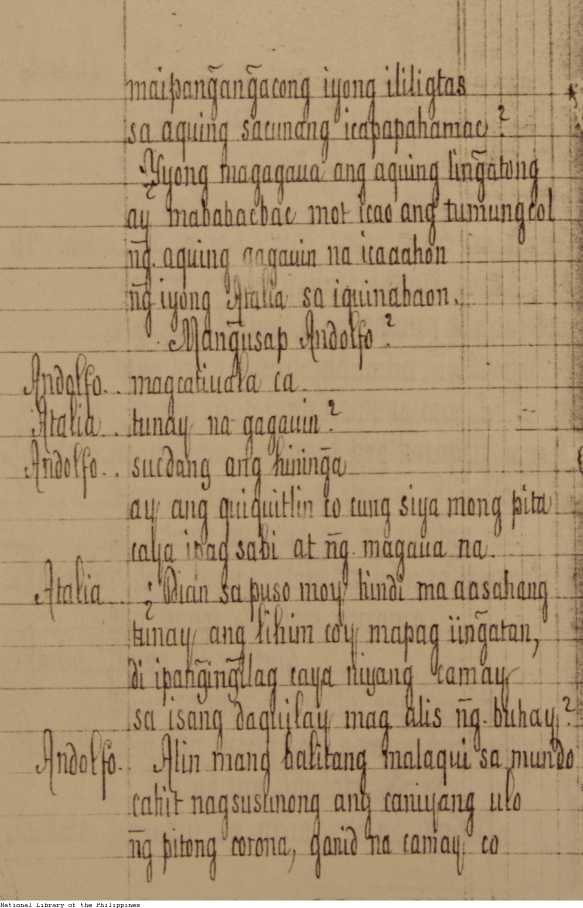 maipang̃ang̃acong iyong ililigtas
sa aquing sacunang icapapahamac?
¿Yyong magagaua ang aquing ling̃atong
ay mababacbac mot icao ang tumungcol
ng̃ aquing gagauin na icaaahon
ng̃ iyong Atalia sa iquinabaon.
Mang̃usap Andolfo?
Andolfo.. magcatiuala ca
Atalia .. tunay na gagauin?
Andolfo.. sucdang ang hining̃a
ay ang quiquitlin co cung siya mong pita
caya ipag sabi at ng̃ magaua na.
Atalia .. ¿Dian sa puso moy hindi ma aasahang
tunay ang lihim coy mapag iing̃atan,
di ipang̃ing̃ilag caya niyang camay
sa isang dagliilay mag alis ng̃ buhay?
Andolfo.. Alin mang balitang malaqui sa mundo
cahit nagsusunong ang caniyang ulo
ng̃ pitong corona, ganid na camay co
National Library of the Philippines